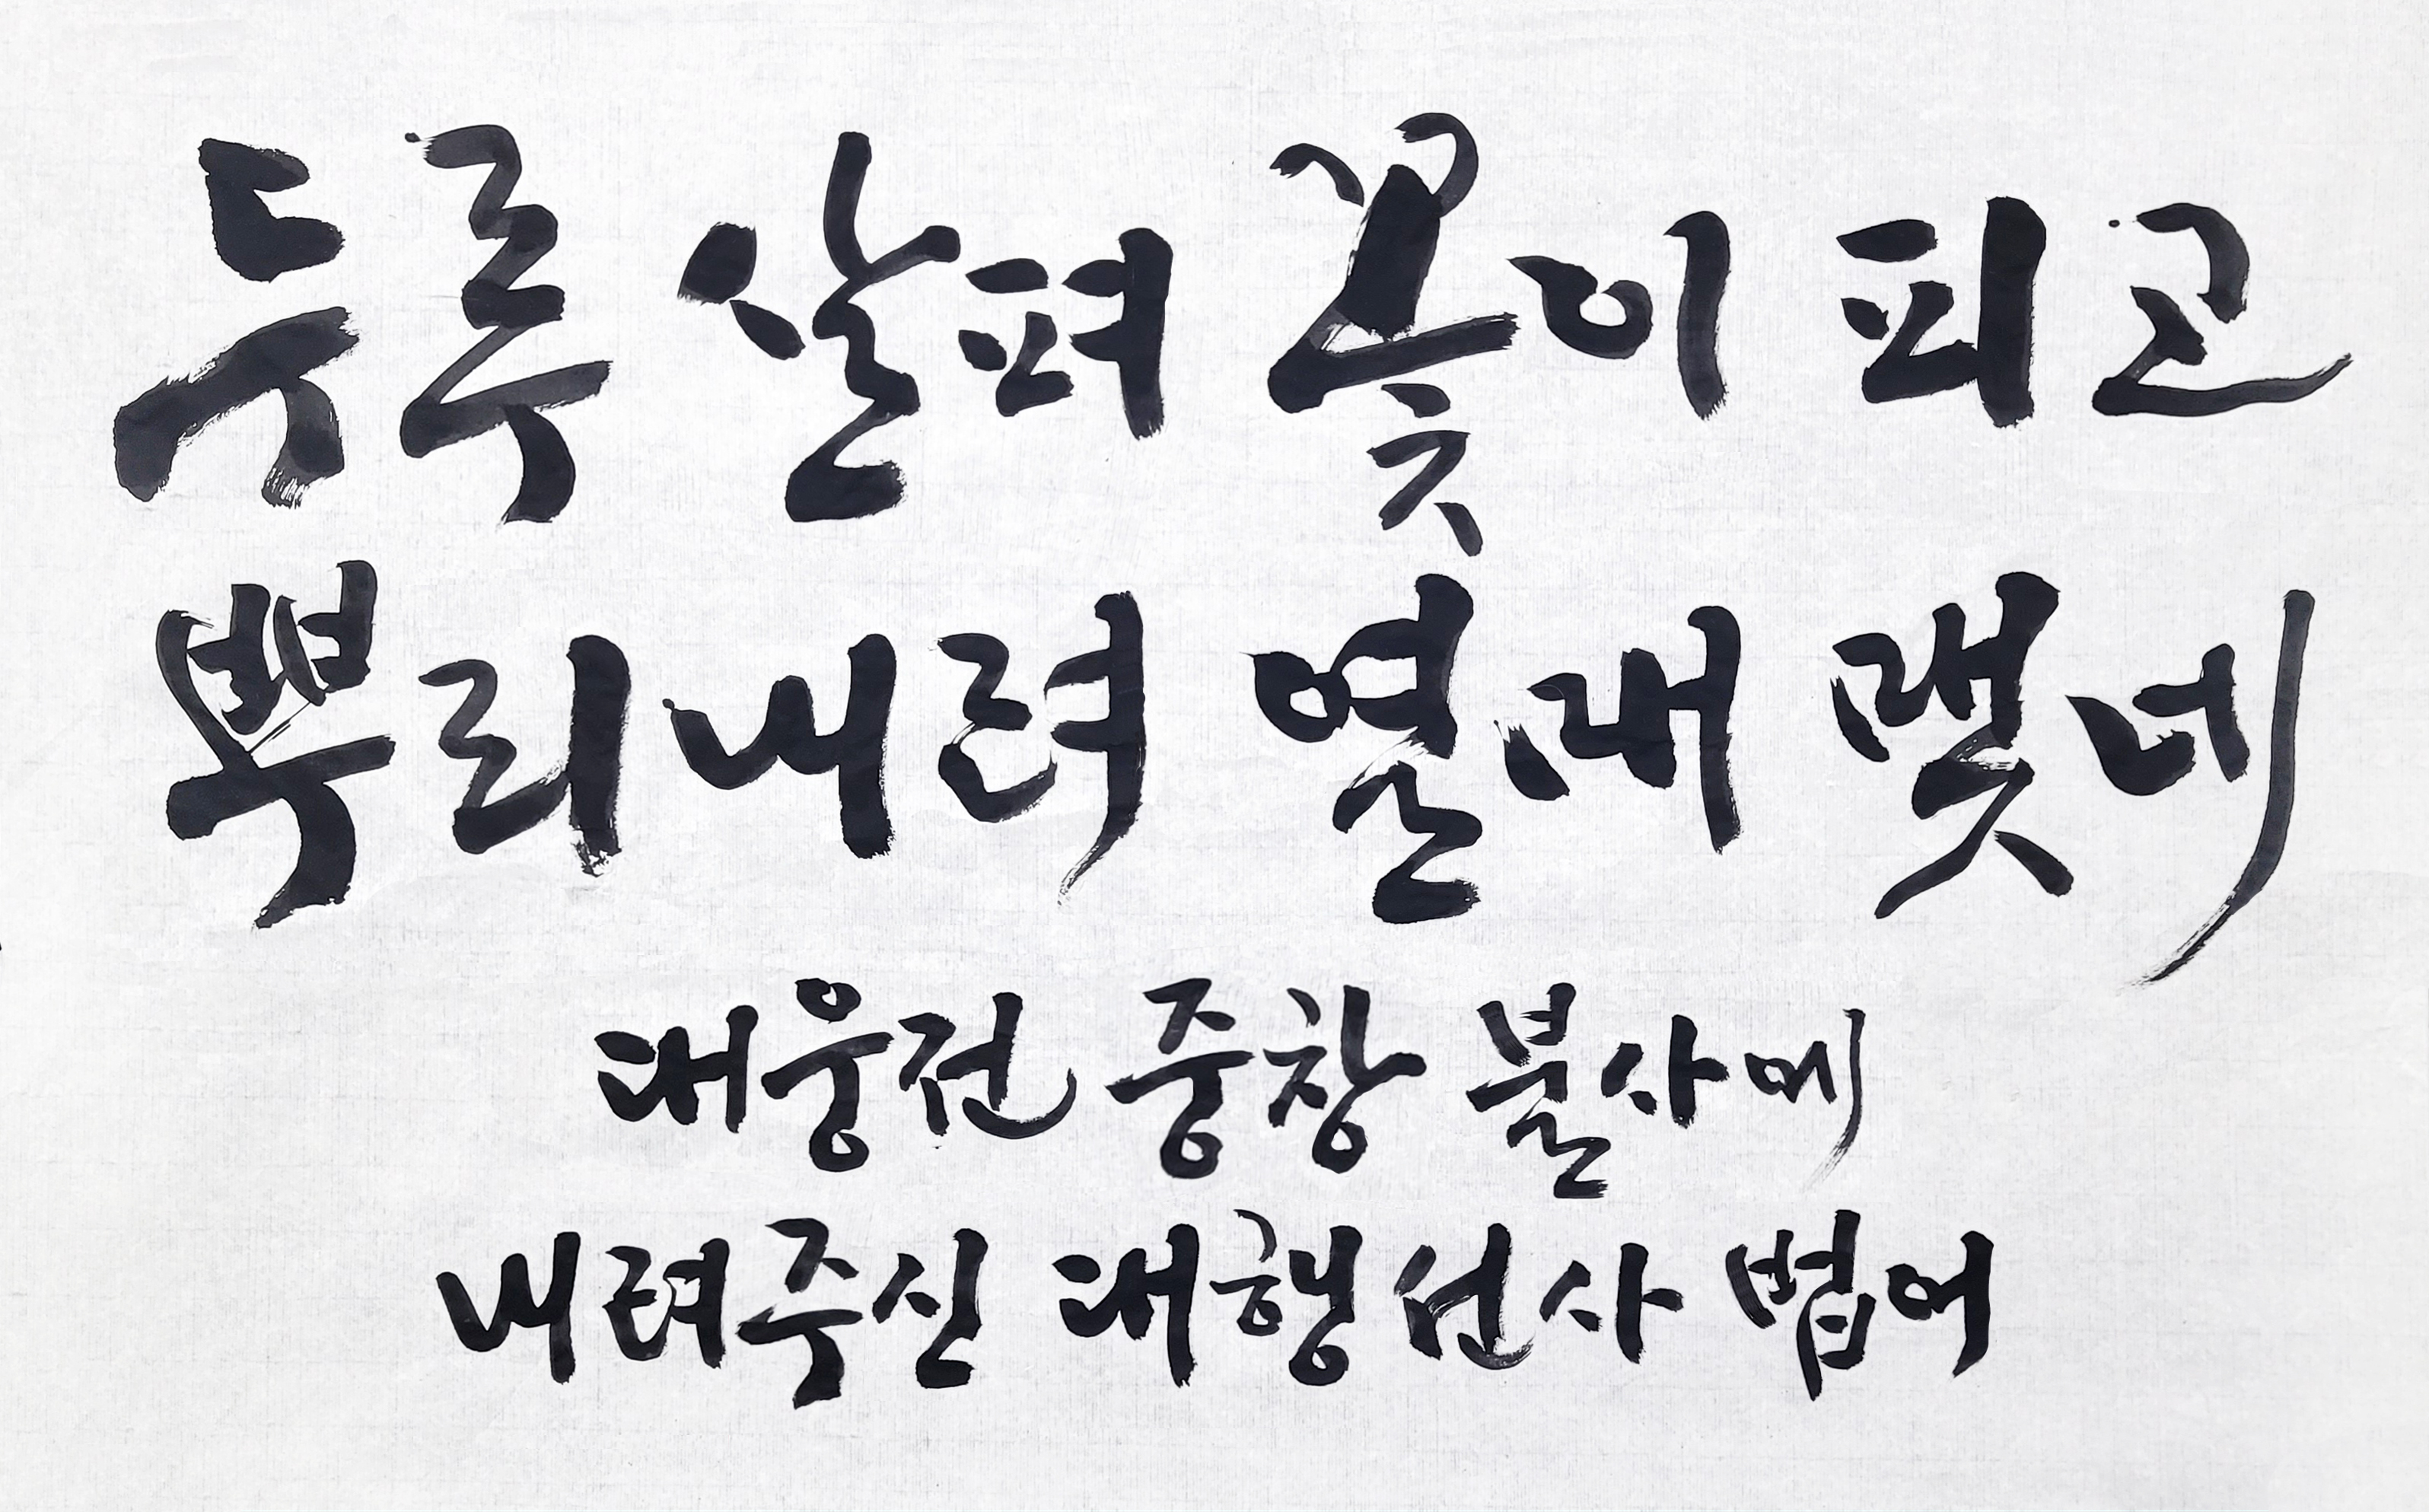 두루 살펴 꽃이 피고
뿌리내려 열매 맺네
대웅전 중창 불사에
내려주신 대행선사 법어